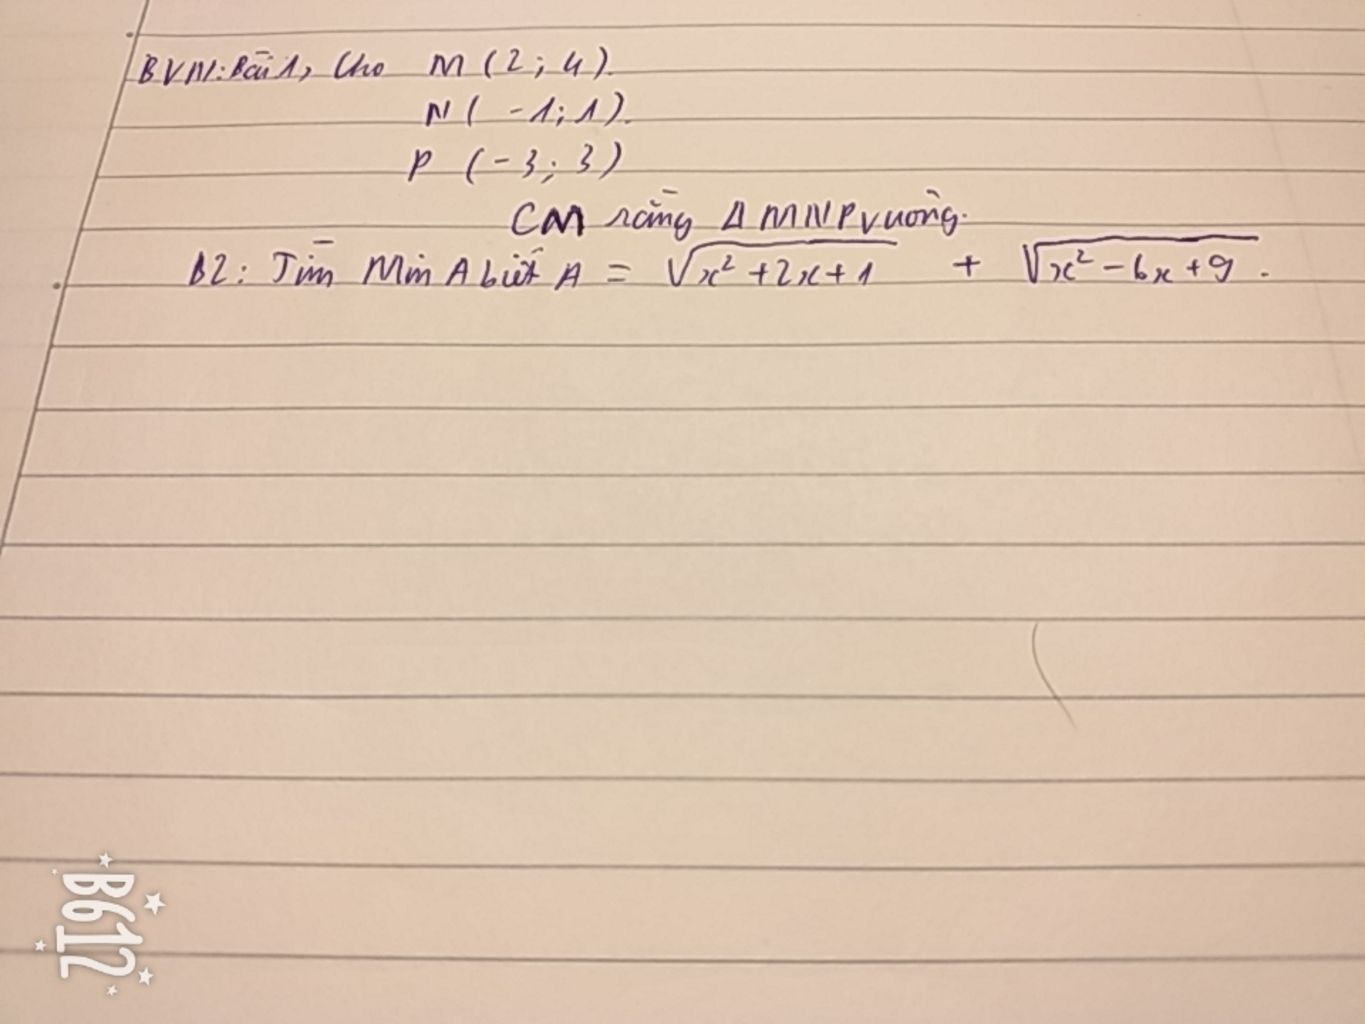 BVN: Bài 1, Cho M (2; 4).
N ( -1; 1).
P (-3; 3)
CM rằng Δ MNP vuông.
B2: Tìm Min A biết A = √x² + 2x + 1 + √x² - 6x + 9 .
B612